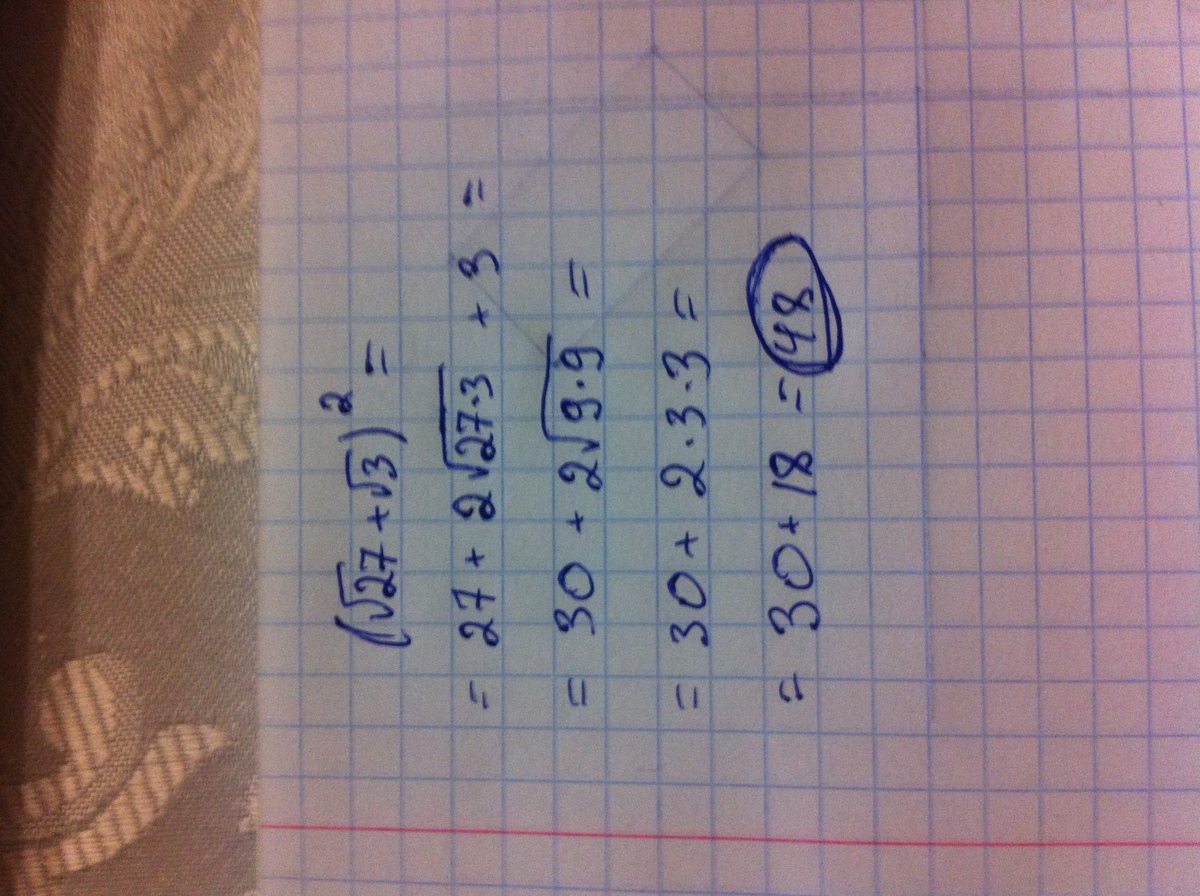 (√27 + √3)² =
= 27 + 2√27·3 + 3 =
= 30 + 2√9·9 =
= 30 + 2·3·3 =
= 30 + 18 = 48